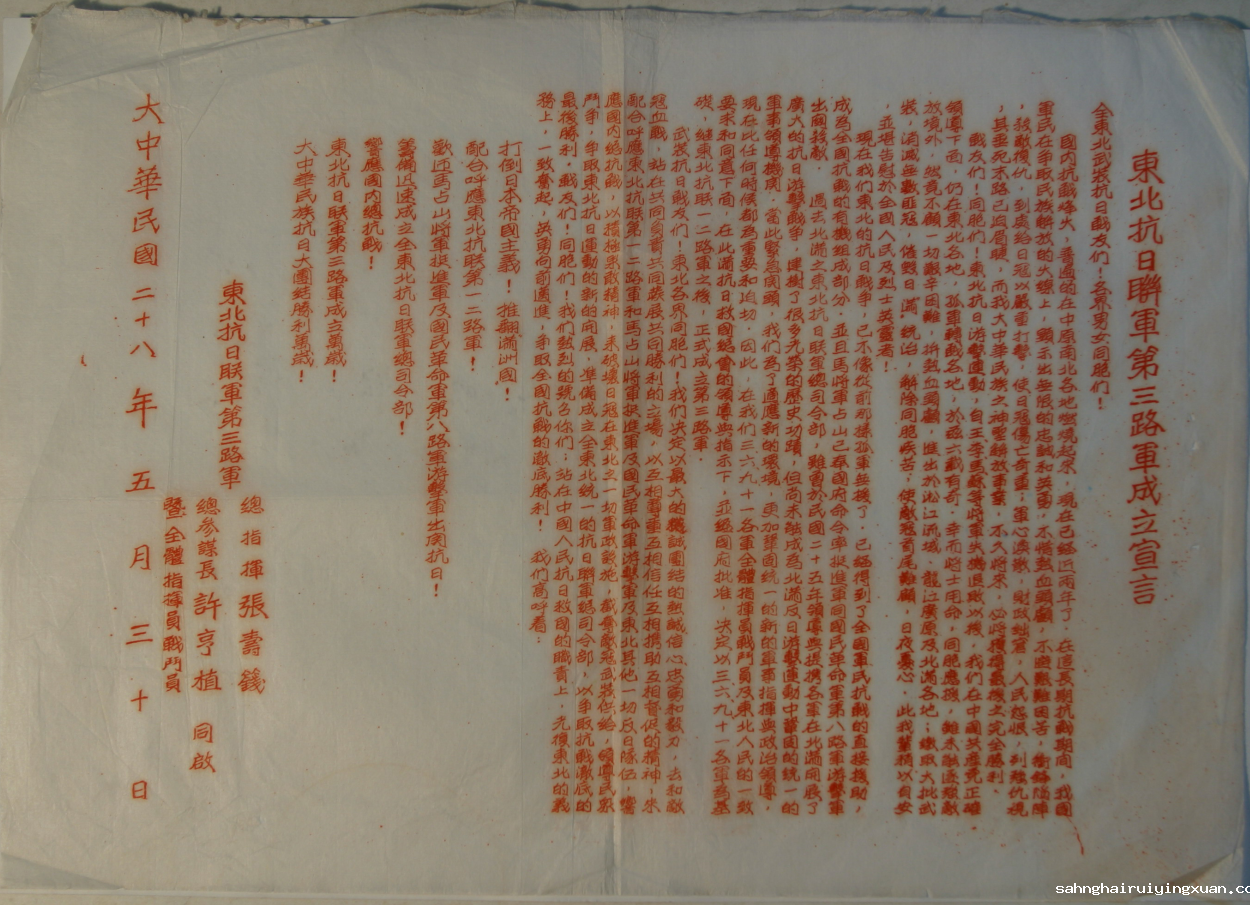 東北抗日聯軍第三路軍成立宣言
全東北武裝抗日戰友們！各界男女同胞們！
國內抗戰烽火，普遍的在中原南北各地燃燒起來，現在已經近兩年了。在這長期抗戰期間，我國
軍民在爭取民族解放的大纛上，顯示出無限的忠誠和英勇，不惜熱血頭顱，不避艱難困苦，衝鋒陷陣
，殺敵復仇，到處給日寇以嚴重打擊，使日寇傷亡奇重，軍心渙散，財政拙窘，人民怨恨，到處仇視
，其垂死末路已迫眉睫，而我大中華民族之神聖解放事業，不久將來，必將獲得最後之完全勝利。
戰友們！同胞們！東北抗日游擊運動，自王李馬蘇等將軍失敗退敗以後，我們在中國共產党正確
領導下面，仍在東北各地，孤軍轉戰各地，於茲六載有奇，幸而將士用命，同胞應援，雖未能逐殲敵
於境外，然竟不顧一切艱辛困難，拚熱血頭顱，進出於淞江流域，龍江廣原及北滿各地；繳取大批武
裝，消滅無數匪寇，催毀日滿統治，解除同胞疾苦，使敵寇首尾難顧，日夜憂心，此我輩稍以自安
，並堪告慰於全國人民及烈士英靈者。
現在我們東北的抗日戰爭，已不像從前那樣孤軍無援了，已經得到了全國軍民抗戰的直接援助，
成為全國抗戰的有機組成部分，並且馬將軍占山已奉國府命令率挺進軍同國民革命軍第八路軍游擊軍
出關殺敵。過去北滿之東北抗日聯軍總司令部，雖曾於民國二十五年領導與提携各軍在北滿開展了
廣大的抗日游擊戰爭，建樹了很多光榮的歷史功蹟，但尚未能成為北滿反日游擊運動中鞏固的統一的
軍事領導機関，當此緊急関頭，我們為了適應新的環境，更加鞏固統一的新的軍事指揮與政治領導，
現在此任何時候都為重要和迫切，因此，在我們三六九十一各軍全體指揮員戰鬥員及東北人民的一致
要求和同意下面，在北滿抗日救國總會的領導與指示下，並經國府批准，決定以三六九十一各軍為基
礎，繼東北抗联一二路軍之後，正式成立第三路軍
武裝抗日戰友們！東北各界同胞們！我們決定以最大的熱誠團結的熱誠信心忠勇和毅力，去和敵
寇血戰，站在共同患責共同發展共同勝利的立場，以互相尊重互相信任互相携助互相督促的精神，來
配合呼應東北抗联第一二路軍和馬占山將軍挺進軍及國民革命軍游擊軍及東北其他一切反日隊伍，響
應國內總抗戰，以積極果敢精神，來破壞日寇在東北之一切軍政設施，截奪敵寇武裝供給，領導民眾
鬥爭，爭取東北抗日運動的新的開展，準備成立全東北統一的抗日聯軍總司令部，以爭取抗戰澈底的
最後勝利，戰友們！同胞們！我們熱烈的號召你們；站在中國人民抗日救國的職責上，光復東北的義
務上，一致奮起，英勇向前邁進，爭取全國抗戰的澈底勝利！我們高呼着：
打倒日本帝國主義！推翻滿洲國！
配合呼應東北抗联第一二路軍！
歡迎馬占山將軍挺進軍及國民革命軍第八路軍游擊軍出関抗日！
籌備迅速成立全東北抗日联軍總司令部！
響應國內總抗戰！
東北抗日联軍第三路軍成立萬歲！
大中華民族抗日大團結勝利萬歲！
東北抗日联軍第三路軍
總指揮張壽籛
總參謀長許亨植 同啟
暨全體指揮員戰鬥員
大中華民國二十八年五月三十日
sahnghairuiyingxuan.co